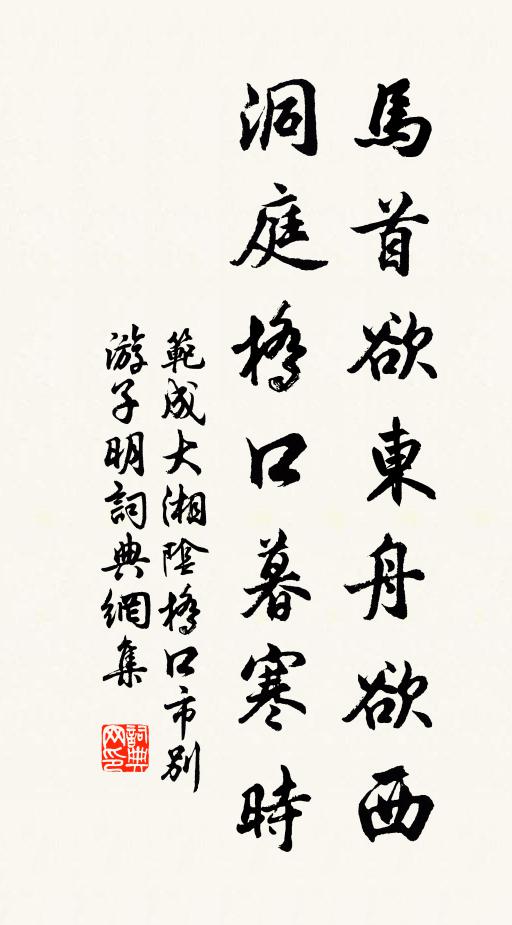 馬首欲東舟欲西
洞庭橋口暮寒時
範成大湘陰橋口市別
游子明詞典網集
詞典网印